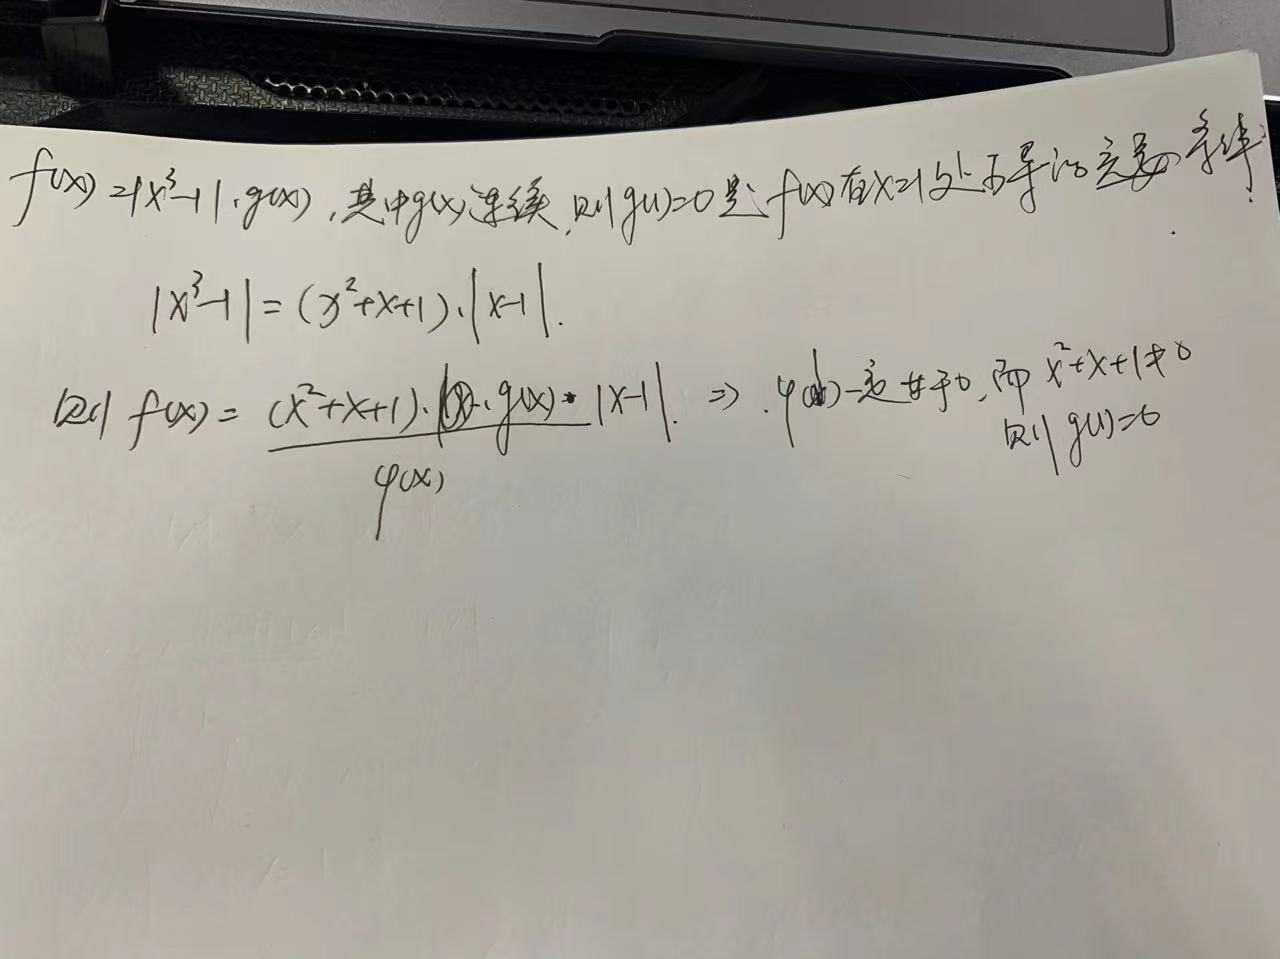 f(x)=|x³-1|·g(x),其中g(x)连续,则g(1)=0是f(x)在x=1处可导的充要条件!
|x³-1|=(x²+x+1)·|x-1|.
则 f(x)=(x²+x+1)··g(x)·|x-1|. ⇒ φ(1)一定等于0,而 x²+x+1≠0
φ(x)
则 g(1)=0